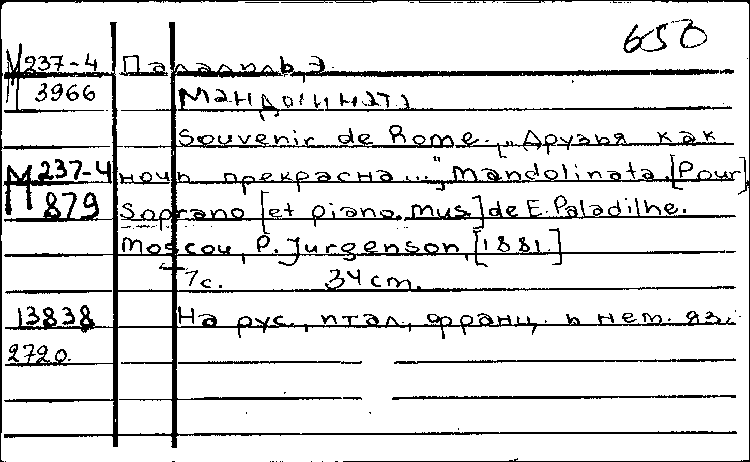 650
М 237-4 Паладиль, Э.
3966 Мандолината
Souvenir de Rome. „Друзья как
М 237-4 ночь прекрасна...", Mandolinata. [Pour]
879 Soprano [et piano. Mus] de E. Paladilhe.
Moscou, P. Jurgenson, [1881.]
7 с. 34 cm.
13838 На рус., итал., франц. и нем. яз.
2720.